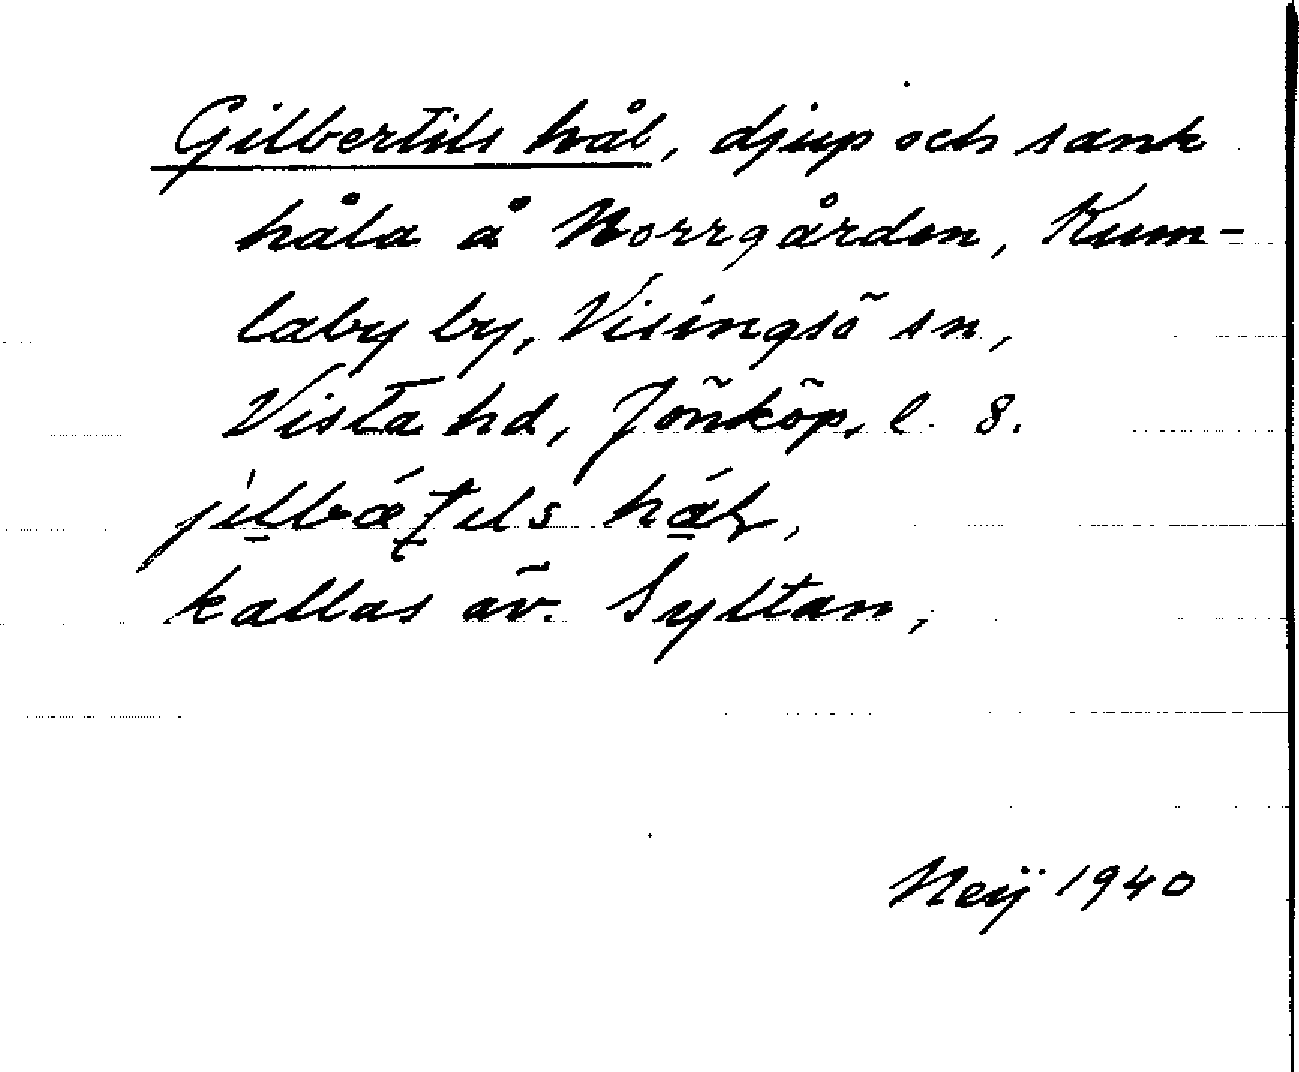 Gilbertils hål, djup och sank
håla å Norrgården, Kum-
laby by, Visingsö sn,
Vista hd, Jönköp. l. 8.
kallas äv. Syltan,
Neij 1940